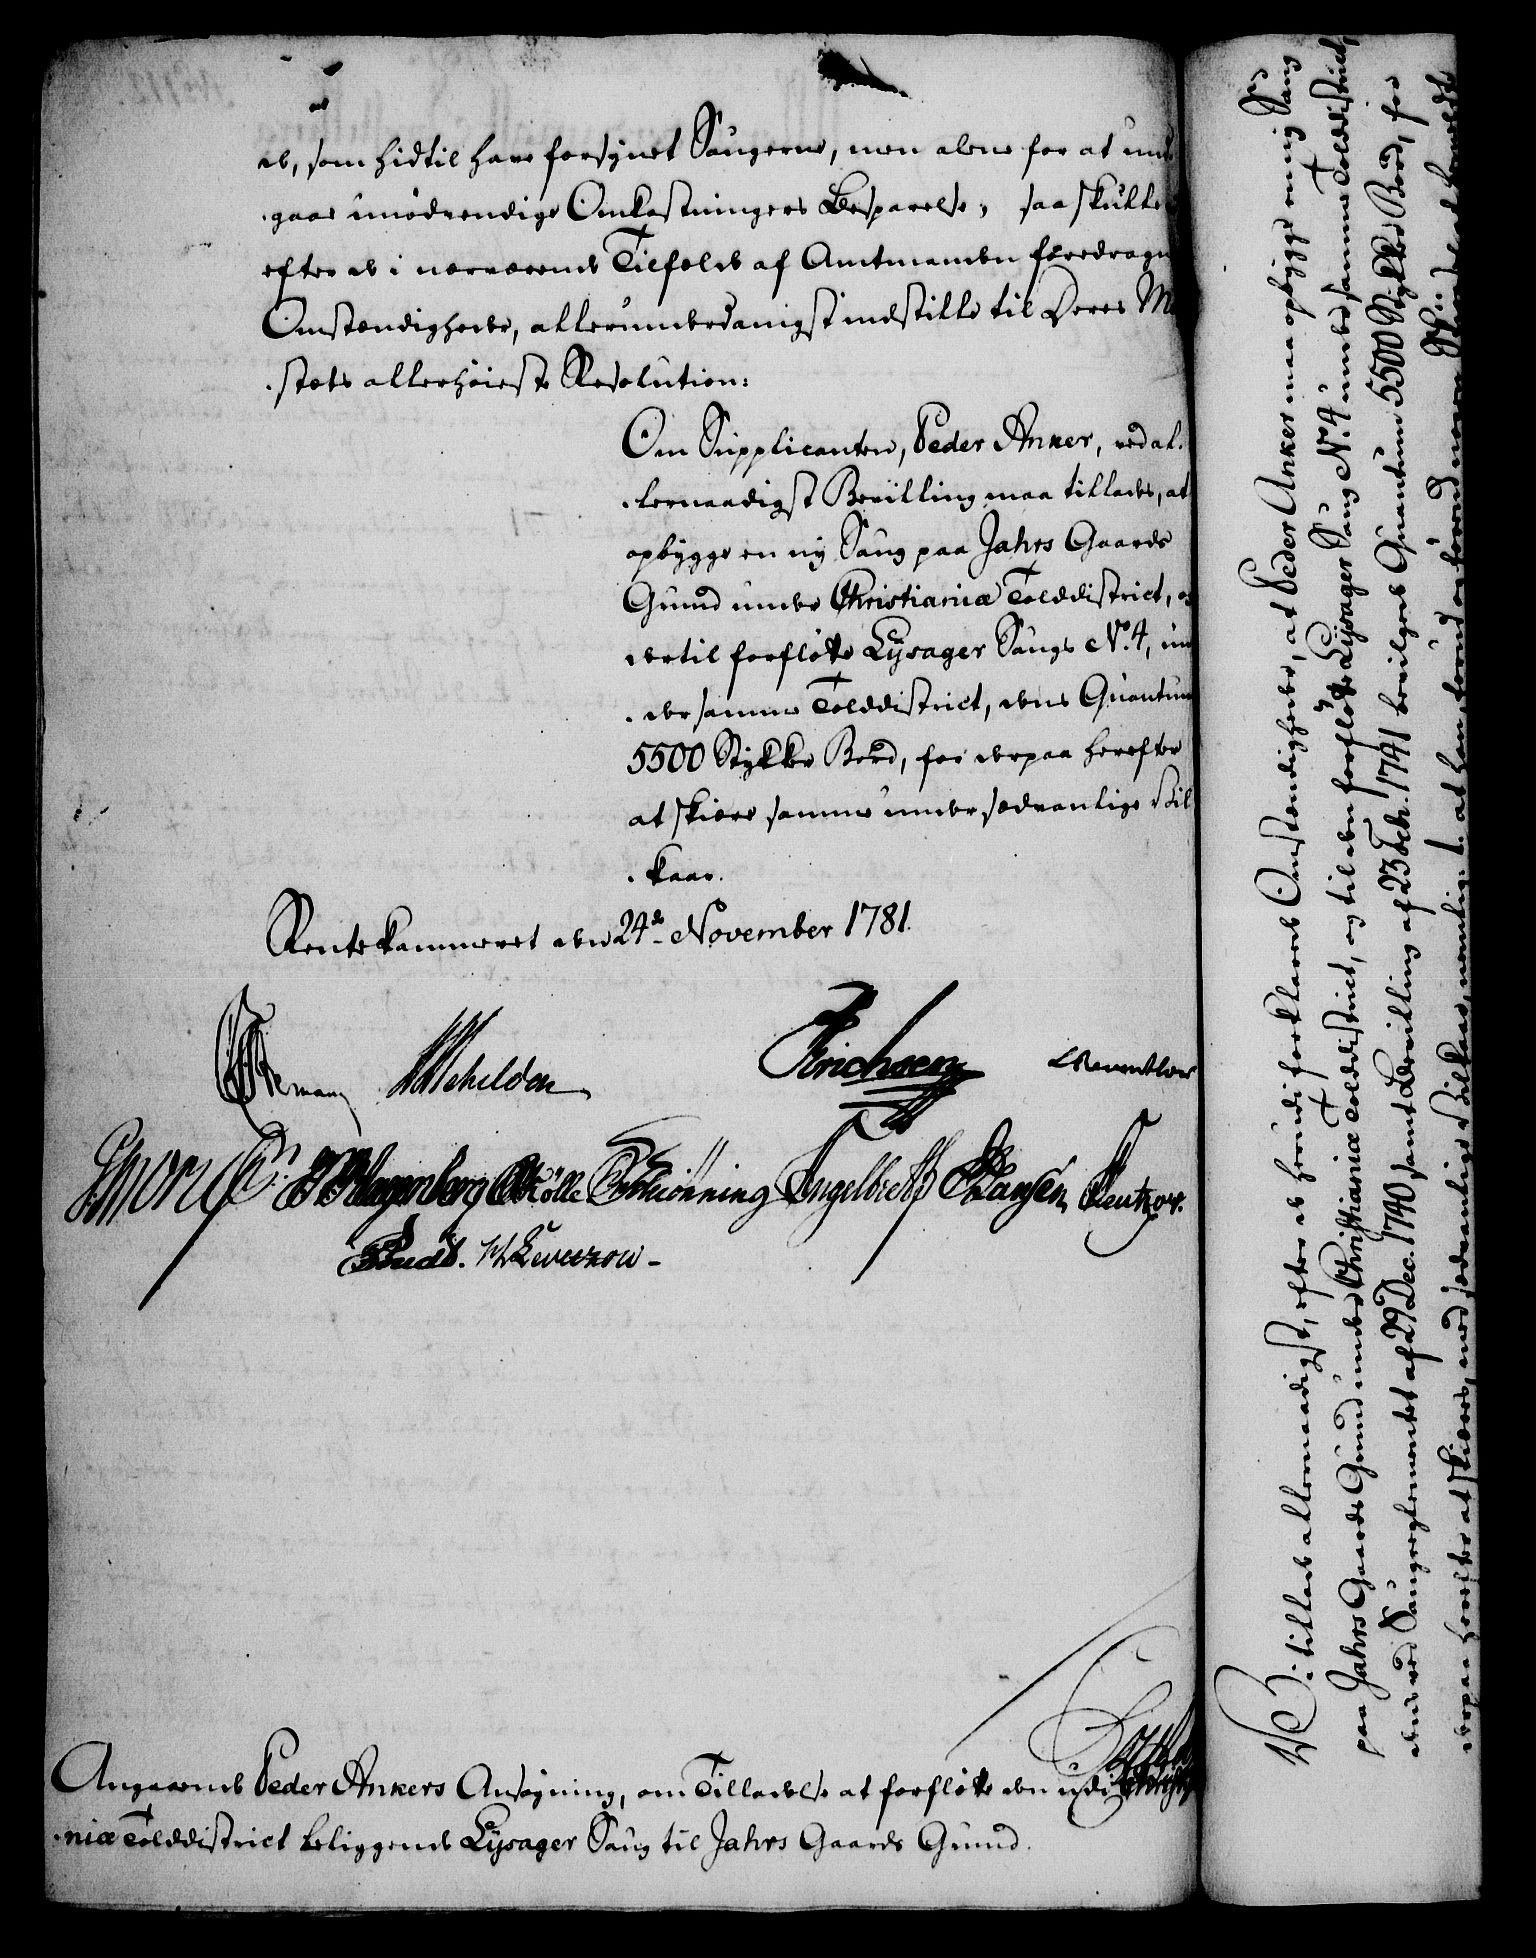 de, som hidtil have forsynet Saugerne, men alene for at und
gaae unødvendige Omkostningers Besparelse; saa skulle
efter de i nærværende Tilfælde af Amtmanden foredragne
Omstændigheder, allerunderdanigst indstille til Deres Ma
stæts allerhøieste Resolution:
Om Supplicanten, Peder Anker, ved al-
lernaadigst Bevilling maa tillades, at
opbygge en nÿ Saug paa Jahrs Gaards
Grund under Christianiæ Tolddistrict, og
dertil forflÿtte Lÿsager Saugs No. 4, un
der samme Tolddistrict, dens Quantum
5500 Stykker Bord, for derpaa herefter
at skiære samme under sædvanlige Vil
kaar.
Rentekammeret den 24de November 1781.
Schilden Erichsen Reventlow
Wagenberg Kølle Schiønning Engelbret Hansen Rentzov.
Budtz. Levetzow
Angaaende Peder Ankers Ansøgning, om Tilladelse at forflÿtte den udi Christia
niæ Tolddistrict beliggende Lÿsager Saug til Jahrs Gaards Grund.
Vi tillade allernaadigst, efter de herudi forklarede Omstændigheder, at Peder Anker maa opbÿgge en nÿ Saug
paa Jahrs Gaards Grund under Christianiæ Tolddistrict, og til den forflÿtte Lÿsager Saug No. 4 under samme Tolddistrict,
dens ved Saugreglementet af 29 Dec. 1740, samt Bevilling af 23 Febr. 1741 bevilgede Quantum 5500 Stykker Bord, for
derpaa herefter at skiære, med sædvanlige Vilkaar, nemlig: 1. at han, forend